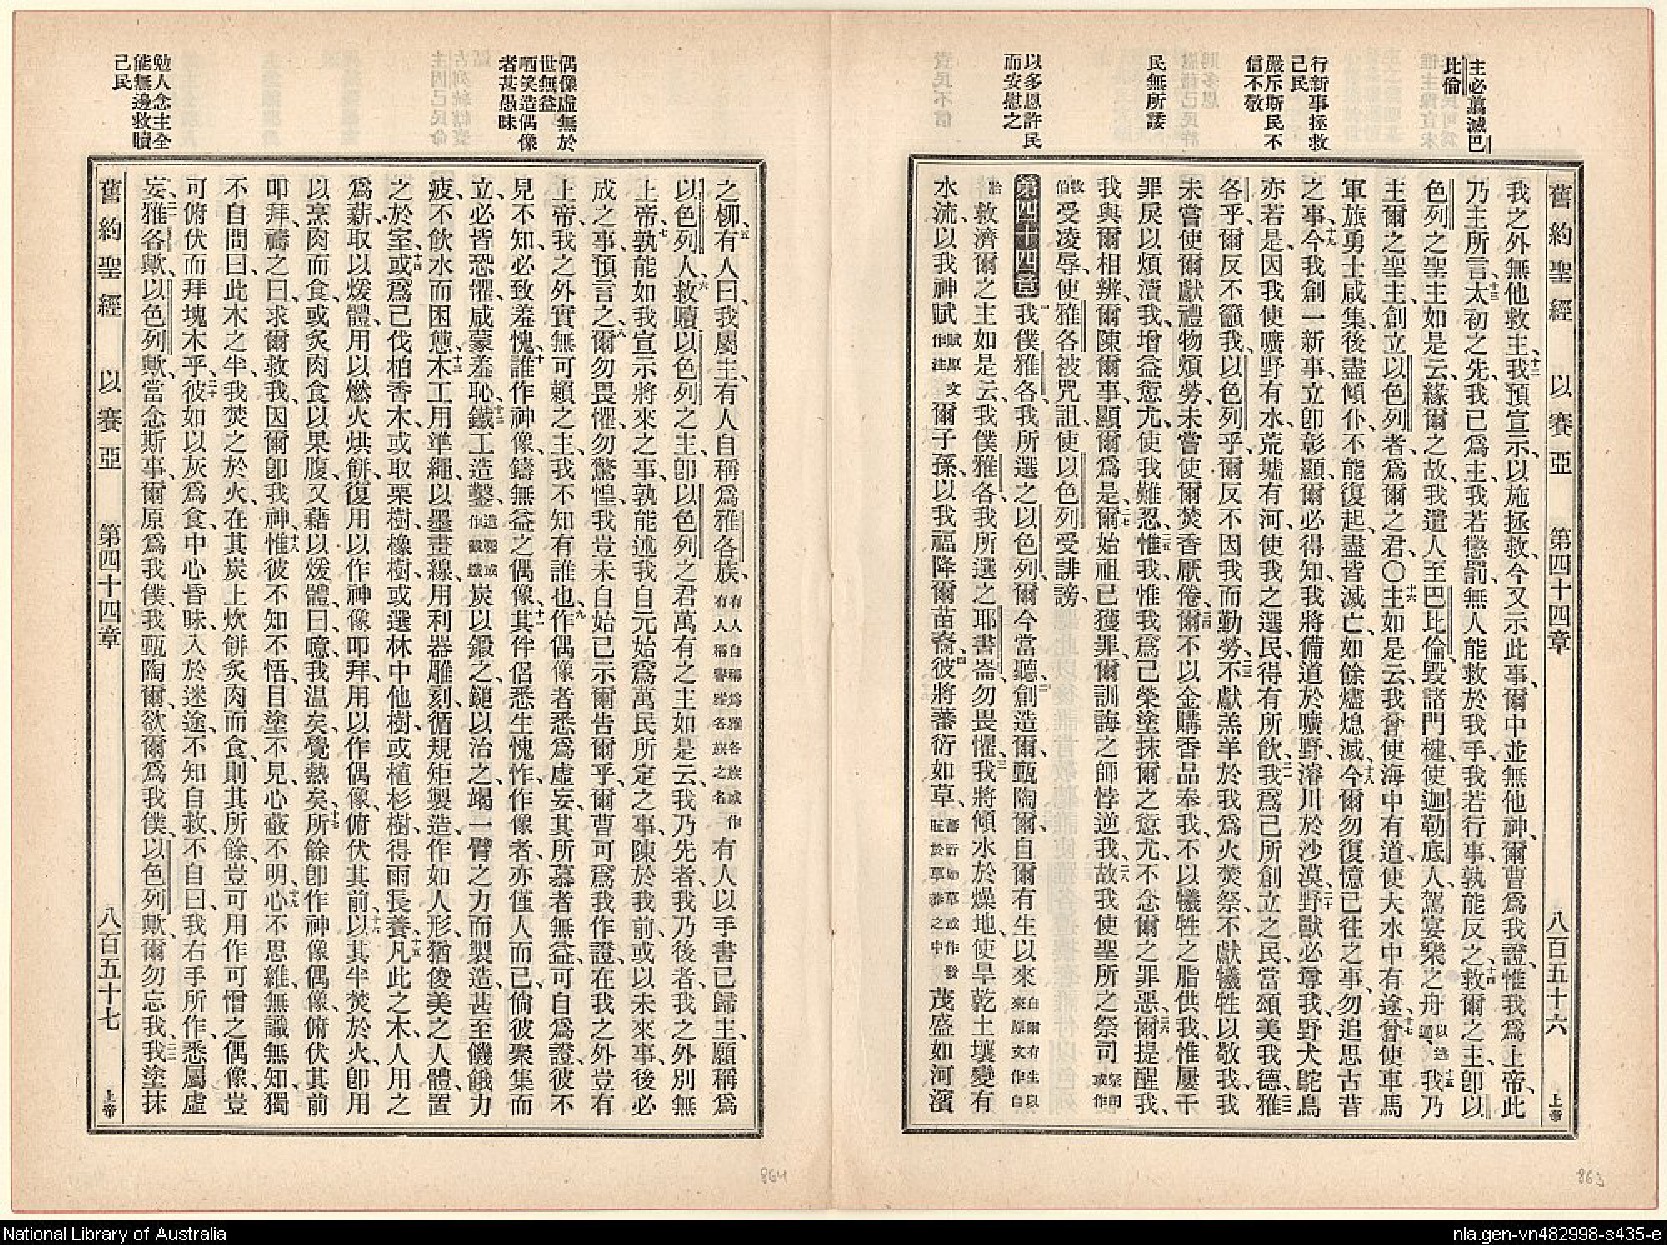 主必翦滅巴
比倫
行新事拯救
己民
嚴斥斯民不
信不敬
民無所諉
以多恩許民
而安慰之
舊約聖經 以賽亞 第四十四章 八百五十六 上帝
我之外無他救主、十二我預宣示、以施拯救、今又示此事、爾中並無他神、爾曹爲我證、惟我爲上帝、此
乃主所言、十三太初之先、我已爲主、我若懲罰、無人能救於我手、我若行事、孰能反之、十四救爾之主、卽以
色列之聖主如是云、緣爾之故、我遣人至巴比倫、毀諸門楗、使迦勒底人駕宴樂之舟以逃遁、十五我乃
主爾之聖主、創立以色列者、爲爾之君、〇十六主如是云、我曾使海中有道、使大水中有途、十七曾使車馬
軍旅勇士咸集、後盡傾仆不能復起、盡皆滅亡、如餘燼熄滅、十八今爾勿復憶已往之事、勿追思古昔
之事、十九今我創一新事、立卽彰顯、爾必得知、我將備道於曠野、濬川於沙漠、二十野獸必尊我、野犬鴕鳥
亦若是、因我使曠野有水、荒墟有河、使我之選民、得有所飲、二一我爲己所創立之民、當頌美我德、二二雅
各乎、爾反不籲我、以色列乎、爾反不因我而勤勞、二三不獻羔羊於我爲火焚祭、不獻犧牲以敬我、我
未嘗使爾獻禮物煩勞、未嘗使爾焚香厭倦、二四爾不以金購香品奉我、不以犧牲之脂供我、惟屢干
罪戾以煩瀆我、增益愆尤、使我難忍、二五惟我惟我爲己榮塗抹爾之愆尤、不念爾之罪惡、二六爾提醒我、
我與爾相辨、爾陳爾事、顯爾爲是、二七爾始祖已獲罪、爾訓誨之師悖逆我、二八故我使聖所之祭司祭司或作
牧伯受凌辱、使雅各被咒詛、使以色列受誹謗、
第四十四章 一我僕雅各、我所選之以色列、爾今當聽、二創造爾、甄陶爾、自爾有生以來自爾有生以來原文作自
胎救濟爾之主如是云、我僕雅各、我所選之耶書崙、勿畏懼、三我將傾水於燥地、使旱乾土壤變有
水流、以我神賦賦原文作注爾子孫、以我福降爾苗裔、四彼將蕃衍如草、蕃衍如草或作發旺於草莽之中茂盛如河濱
偶像虛無於
世無益
哂笑造偶像
者甚愚昧
勉人念主全
能無邊救贖
己民
之柳、五有人曰、我屬主、有人自稱爲雅各族、有人自稱爲雅各族或作有人稱譽雅各族之名有人以手書已歸主、願稱爲
以色列人、六救贖以色列之主、卽以色列之君萬有之主如是云、我乃先者、我乃後者、我之外別無
上帝、七孰能如我宣示將來之事、孰能述我自元始爲萬民所定之事、陳於我前、或以未來事後必
成之事、預言之、八爾勿畏懼、勿驚惶、我豈未自始已示爾告爾乎、爾曹可爲我作證、在我之外豈有
上帝、我之外實無可賴之主、我不知有誰也、九作偶像者悉爲虛妄、其所慕者無益、可自爲證、彼不
見不知、必致羞愧、十誰作神像、鑄無益之偶像、十一其伴侶悉生愧怍、作像者亦僅人而已、倘彼聚集而
立、必皆恐懼、咸蒙羞恥、十二鐵工造鑿、造鑿或作截鐵炭以鍛之、鎚以治之、竭一臂之力而製造、甚至饑餓力
疲、不飲水而困憊、十三木工用準繩、以墨畫線、用利器雕刻、循規矩製造、作如人形、猶俊美之人體、置
之於室、十四或爲己伐柏香木、或取栗樹、橡樹、或選林中他樹、或植杉樹、得雨長養、十五凡此之木、人用之
爲薪、取以煖體、用以燃火烘餅、復用以作神像叩拜、用以作偶像、俯伏其前、十六以其半焚於火、卽用
以烹肉而食、或炙肉食以果腹、又藉以煖體、曰、噫、我溫矣、覺熱矣、十七所餘卽作神像偶像、俯伏其前
叩拜、禱之曰、求爾救我、因爾卽我神、十八惟彼不知不悟、目塗不見、心蔽不明、十九心不思維、無識無知、獨
不自問曰、此木之半、我焚之於火、在其炭上炊餅炙肉而食、則其所餘、豈可用作可憎之偶像、豈
可俯伏而拜塊木乎、二十彼如以灰爲食、中心昏昧、入於迷途、不知自救、不自曰、我右手所作、悉屬虛
妄、二一雅各歟、以色列歟、當念斯事、爾原爲我僕、我甄陶爾、欲爾爲我僕、以色列歟、爾勿忘我、二二我塗抹
舊約聖經 以賽亞 第四十四章 八百五十七 上帝
864
863
National Library of Australia
nla.gen-vn482998-s435-e